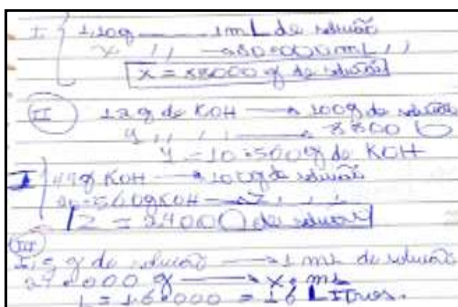 I 1,10g 1mL de solução
x ,, 80.000mL ,,
x = 88000 g de solução
II 12g de KOH → 100g de solução
y ,, → 8800
y = 10.560g de KOH
I 44g KOH → 100g de solução
10.560gKOH → z , ,
z = 24000 de solução
III
1,5 g de solução → 1 mL de solução
24.000 g → x mL
= 16.000 = 16 Litros.